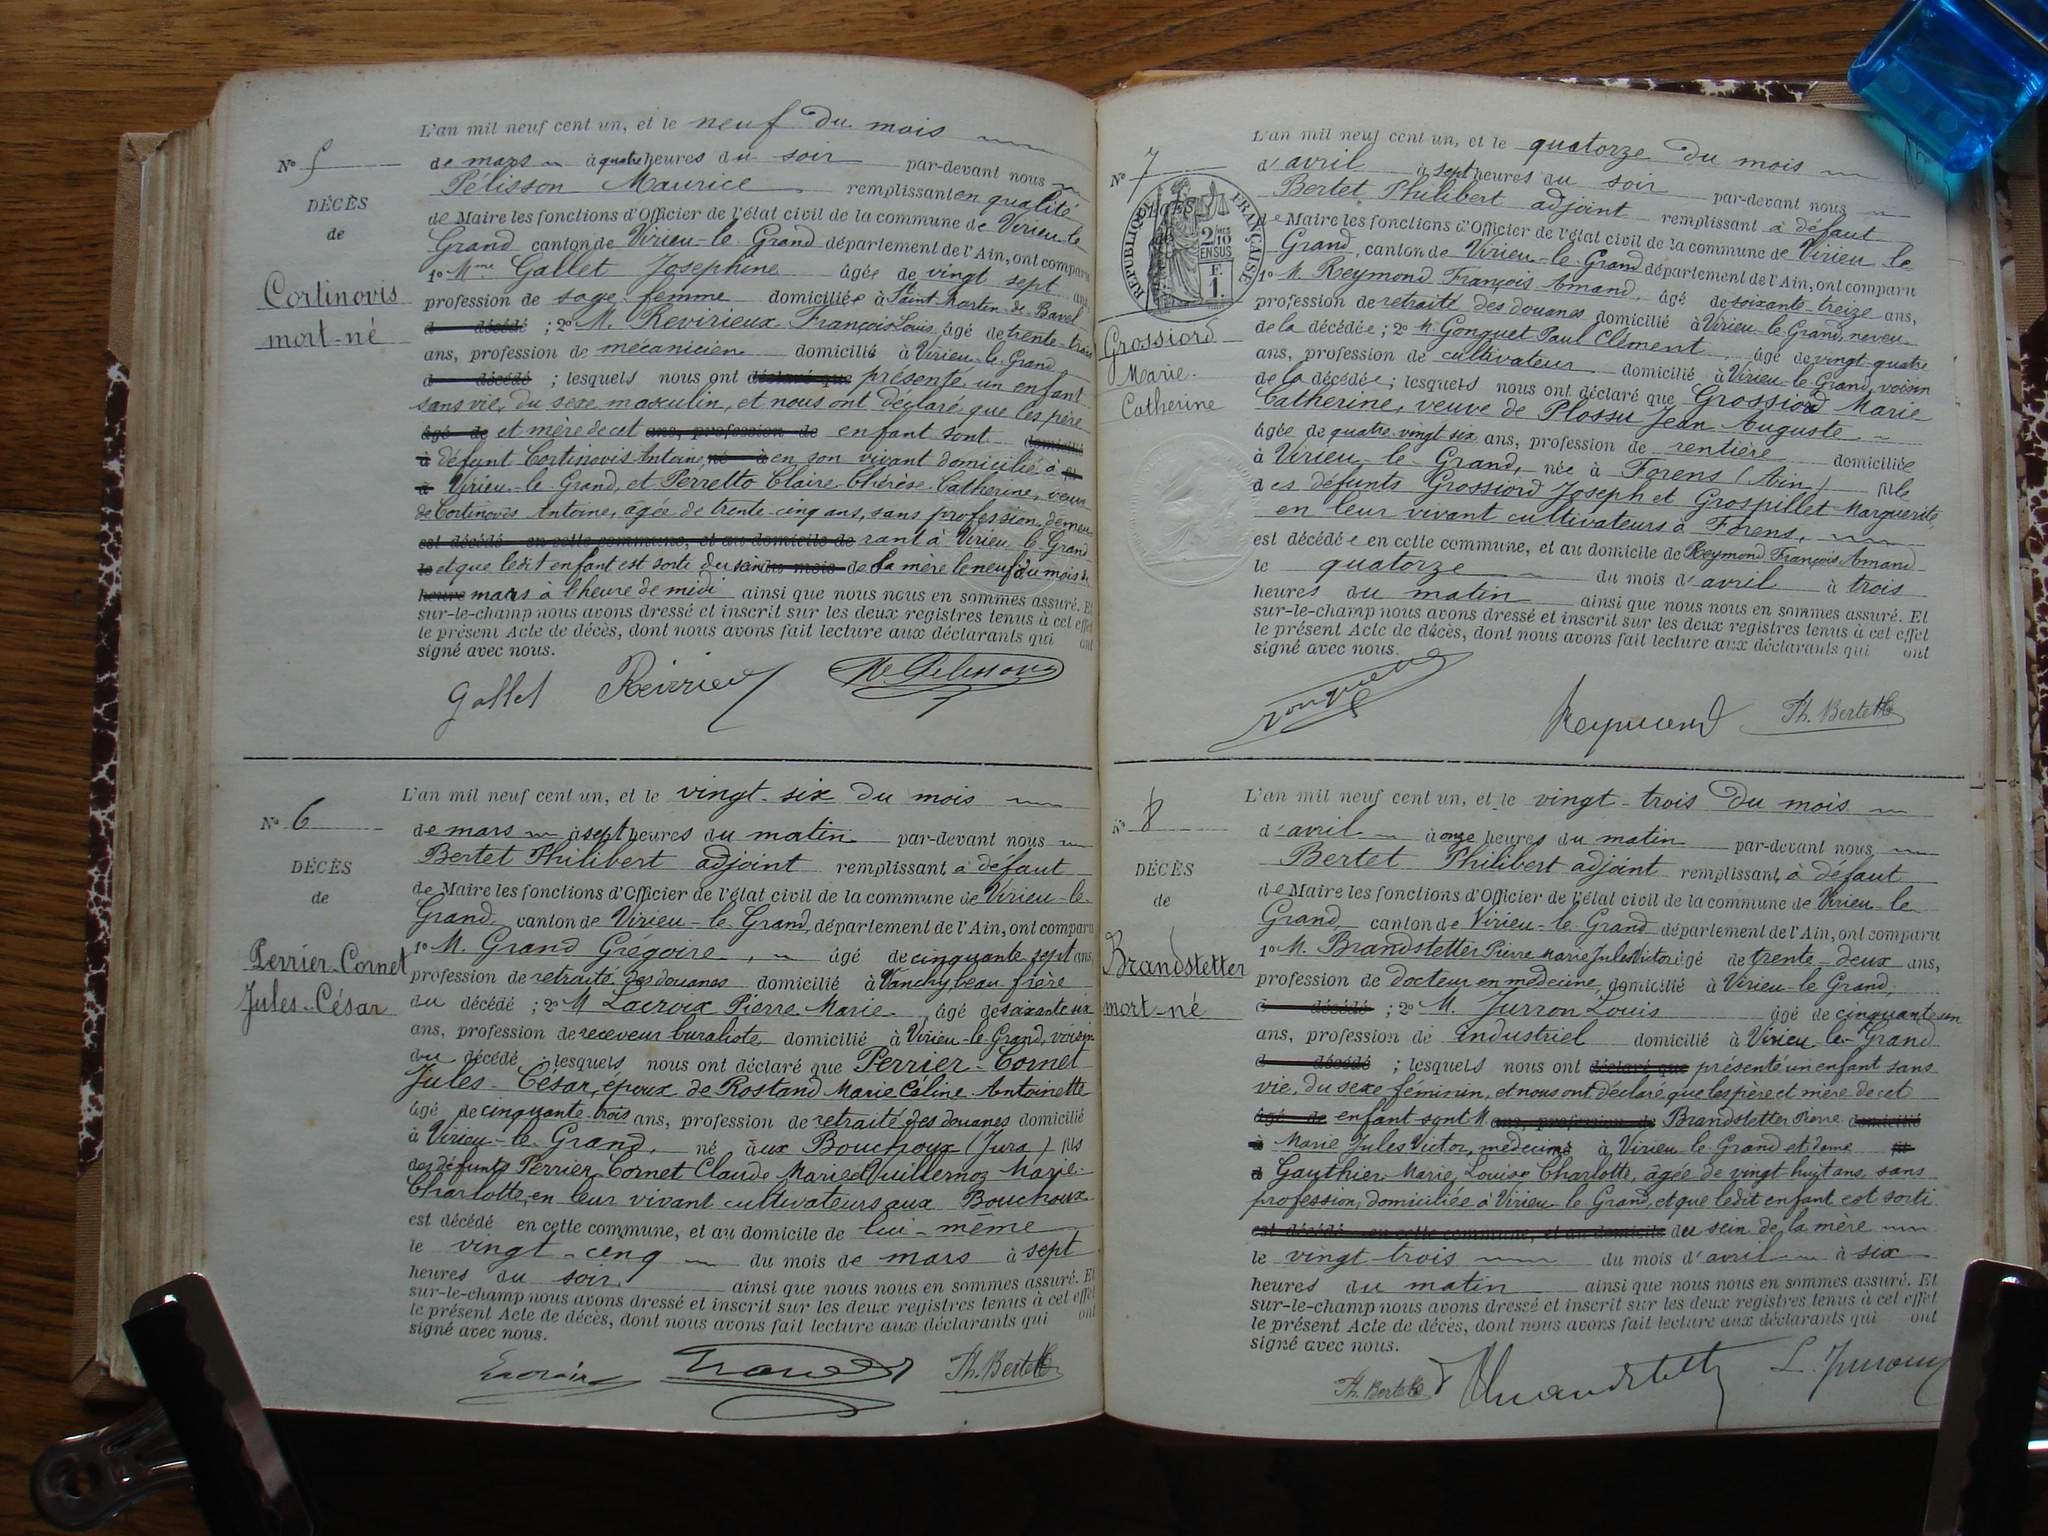 N° 5
DÉCÈS
de
Cortinovis
mort-né
L'an mil neuf cent un, et le neuf du mois
de mars à quatre heures du soir par-devant nous
Pélisson Maurice remplissant en qualité
de Maire les fonctions d'Officier de l'état civil de la commune de Virieu-le
Grand canton de Virieu-le-Grand département de l'Ain, ont comparu
1° Mme Gallet Josephine âgée de vingt sept ans
profession de sage-femme domiciliée à Saint Martin de Bavel
d décédé ; 2° M. Revirieux François Louis, âgé de trente-trois
ans, profession de mécanicien domicilié à Virieu-le-Grand,
d décédé ; lesquels nous ont déclaré que présenté un enfant
sans vie, du sexe masculin, et nous ont déclaré que les père
âgé de et mère de cet ans, profession de enfant sont domicilié
à défunt Cortinovis Antoine, né à en son vivant domicilié à
à Virieu-le-Grand, et Perretto Claire Thérèse Catherine, veuve
de Cortinovis Antoine, âgée de trente-cinq ans, sans profession, demeu
est décédé en cette commune, et au domicile de rant à Virieu le Grand
le et que ledit enfant est sorti du sein du mois de la mère le neuf du mois de
heure mars à l'heure de midi ainsi que nous nous en sommes assuré. Et
sur-le-champ nous avons dressé et inscrit sur les deux registres tenus à cet effet
le présent Acte de décès, dont nous avons fait lecture aux déclarants qui ont
signé avec nous.
Gallet Révirieux M. Pelisson
N° 6
DÉCÈS
de
Perrier-Cornet
Jules-César
L'an mil neuf cent un, et le vingt-six du mois
de mars à sept heures du matin par-devant nous
Bertet Philibert adjoint remplissant à défaut
de Maire les fonctions d'Officier de l'état civil de la commune de Virieu-le-
Grand canton de Virieu-le-Grand, département de l'Ain, ont comparu
1° M. Grand Grégoire, âgé de cinquante sept ans,
profession de retraité des douanes domicilié à Vanchy beau frère
du décédé ; 2° M Lacroix Pierre Marie âgé de soixante six
ans, profession de receveur buraliste domicilié à Virieu-le-Grand, voisin
du décédé lesquels nous ont déclaré que Perrier-Cornet
Jules-César, époux de Rostand Marie Céline Antoinette
âgé de cinquante-trois ans, profession de retraité des douanes domicilié
à Virieu-le-Grand, né aux Bouchoux (Jura) fils
des défunts Perrier-Cornet Claude Marie et Vuillermoz Marie-
Charlotte, en leur vivant cultivateurs aux Bouchoux
est décédé en cette commune, et au domicile de lui-même
le vingt-cinq du mois de mars à sept
heures du soir ainsi que nous nous en sommes assuré. Et
sur-le-champ nous avons dressé et inscrit sur les deux registres tenus à cet effet
le présent Acte de décès, dont nous avons fait lecture aux déclarants qui ont
signé avec nous.
Lacroix Grand Ph. Bertet
N° 7
DÉCÈS
de
RÉPUBLIQUE FRANÇAISE
2/10 EN SUS
F. 1.
Grossiord
Marie
Catherine
L'an mil neuf cent un, et le quatorze du mois
d'avril à sept heures du soir par-devant nous
Bertet Philibert adjoint remplissant à défaut
de Maire les fonctions d'Officier de l'état civil de la commune de Virieu le
Grand, canton de Virieu-le-Grand département de l'Ain, ont comparu
1° M Reymond François Amand, âgé de soixante-treize ans,
profession de retraité des douanes domicilié à Virieu-le-Grand, neveu
de la décédée ; 2° M. Gonguet Paul Clément âgé de vingt-quatre
ans, profession de cultivateur domicilié à Virieu-le-Grand, voisin
de la décédée ; lesquels nous ont déclaré que Grossiord Marie
Catherine, veuve de Plossu Jean Auguste
âgée de quatre-vingt six ans, profession de rentière domiciliée
à Virieu-le-Grand, née à Forens (Ain) fille
des défunts Grossiord Joseph et Grospillet Marguerite
en leur vivant cultivateurs à Forens,
est décédée en cette commune, et au domicile de Reymond François Amand
le quatorze du mois d'avril à trois
heures du matin ainsi que nous nous en sommes assuré. Et
sur-le-champ nous avons dressé et inscrit sur les deux registres tenus à cet effet
le présent Acte de décès, dont nous avons fait lecture aux déclarants qui ont
signé avec nous.
Reymond Ph. Bertet
N° 8
DÉCÈS
de
Brandstetter
mort-né
L'an mil neuf cent un, et le vingt-trois du mois
d'avril à onze heures du matin par-devant nous
Bertet Philibert adjoint remplissant à défaut
de Maire les fonctions d'Officier de l'état civil de la commune de Virieu-le
Grand, canton de Virieu-le-Grand département de l'Ain, ont comparu
1° M. Brandstetter Pierre Marie Jules Victor âgé de trente-deux ans,
profession de docteur en médecine, domicilié à Virieu-le Grand,
d décédé ; 2° M. Jurron Louis âgé de cinquante un
ans, profession de industriel domicilié à Virieu-le-Grand
d décédé ; lesquels nous ont déclaré que présenté un enfant sans
vie, du sexe féminin, et nous ont déclaré que les père et mère de cet
âgé de enfant sont M ans, profession de Brandstetter Pierre domicilié
à Marie Jules Victor, médecin à Virieu le Grand et dame fils
d Gauthier Marie Louise Charlotte, âgée de vingt-huit ans, sans
profession, domiciliée à Virieu-le Grand, et que ledit enfant est sorti
est décédé en cette commune, et au domicile du sein de la mère
le vingt trois du mois d'avril à six
heures du matin ainsi que nous nous en sommes assuré. Et
sur-le-champ nous avons dressé et inscrit sur les deux registres tenus à cet effet
le présent Acte de décès, dont nous avons fait lecture aux déclarants qui ont
signé avec nous.
Ph. Bertet Brandstetter L. Jurron